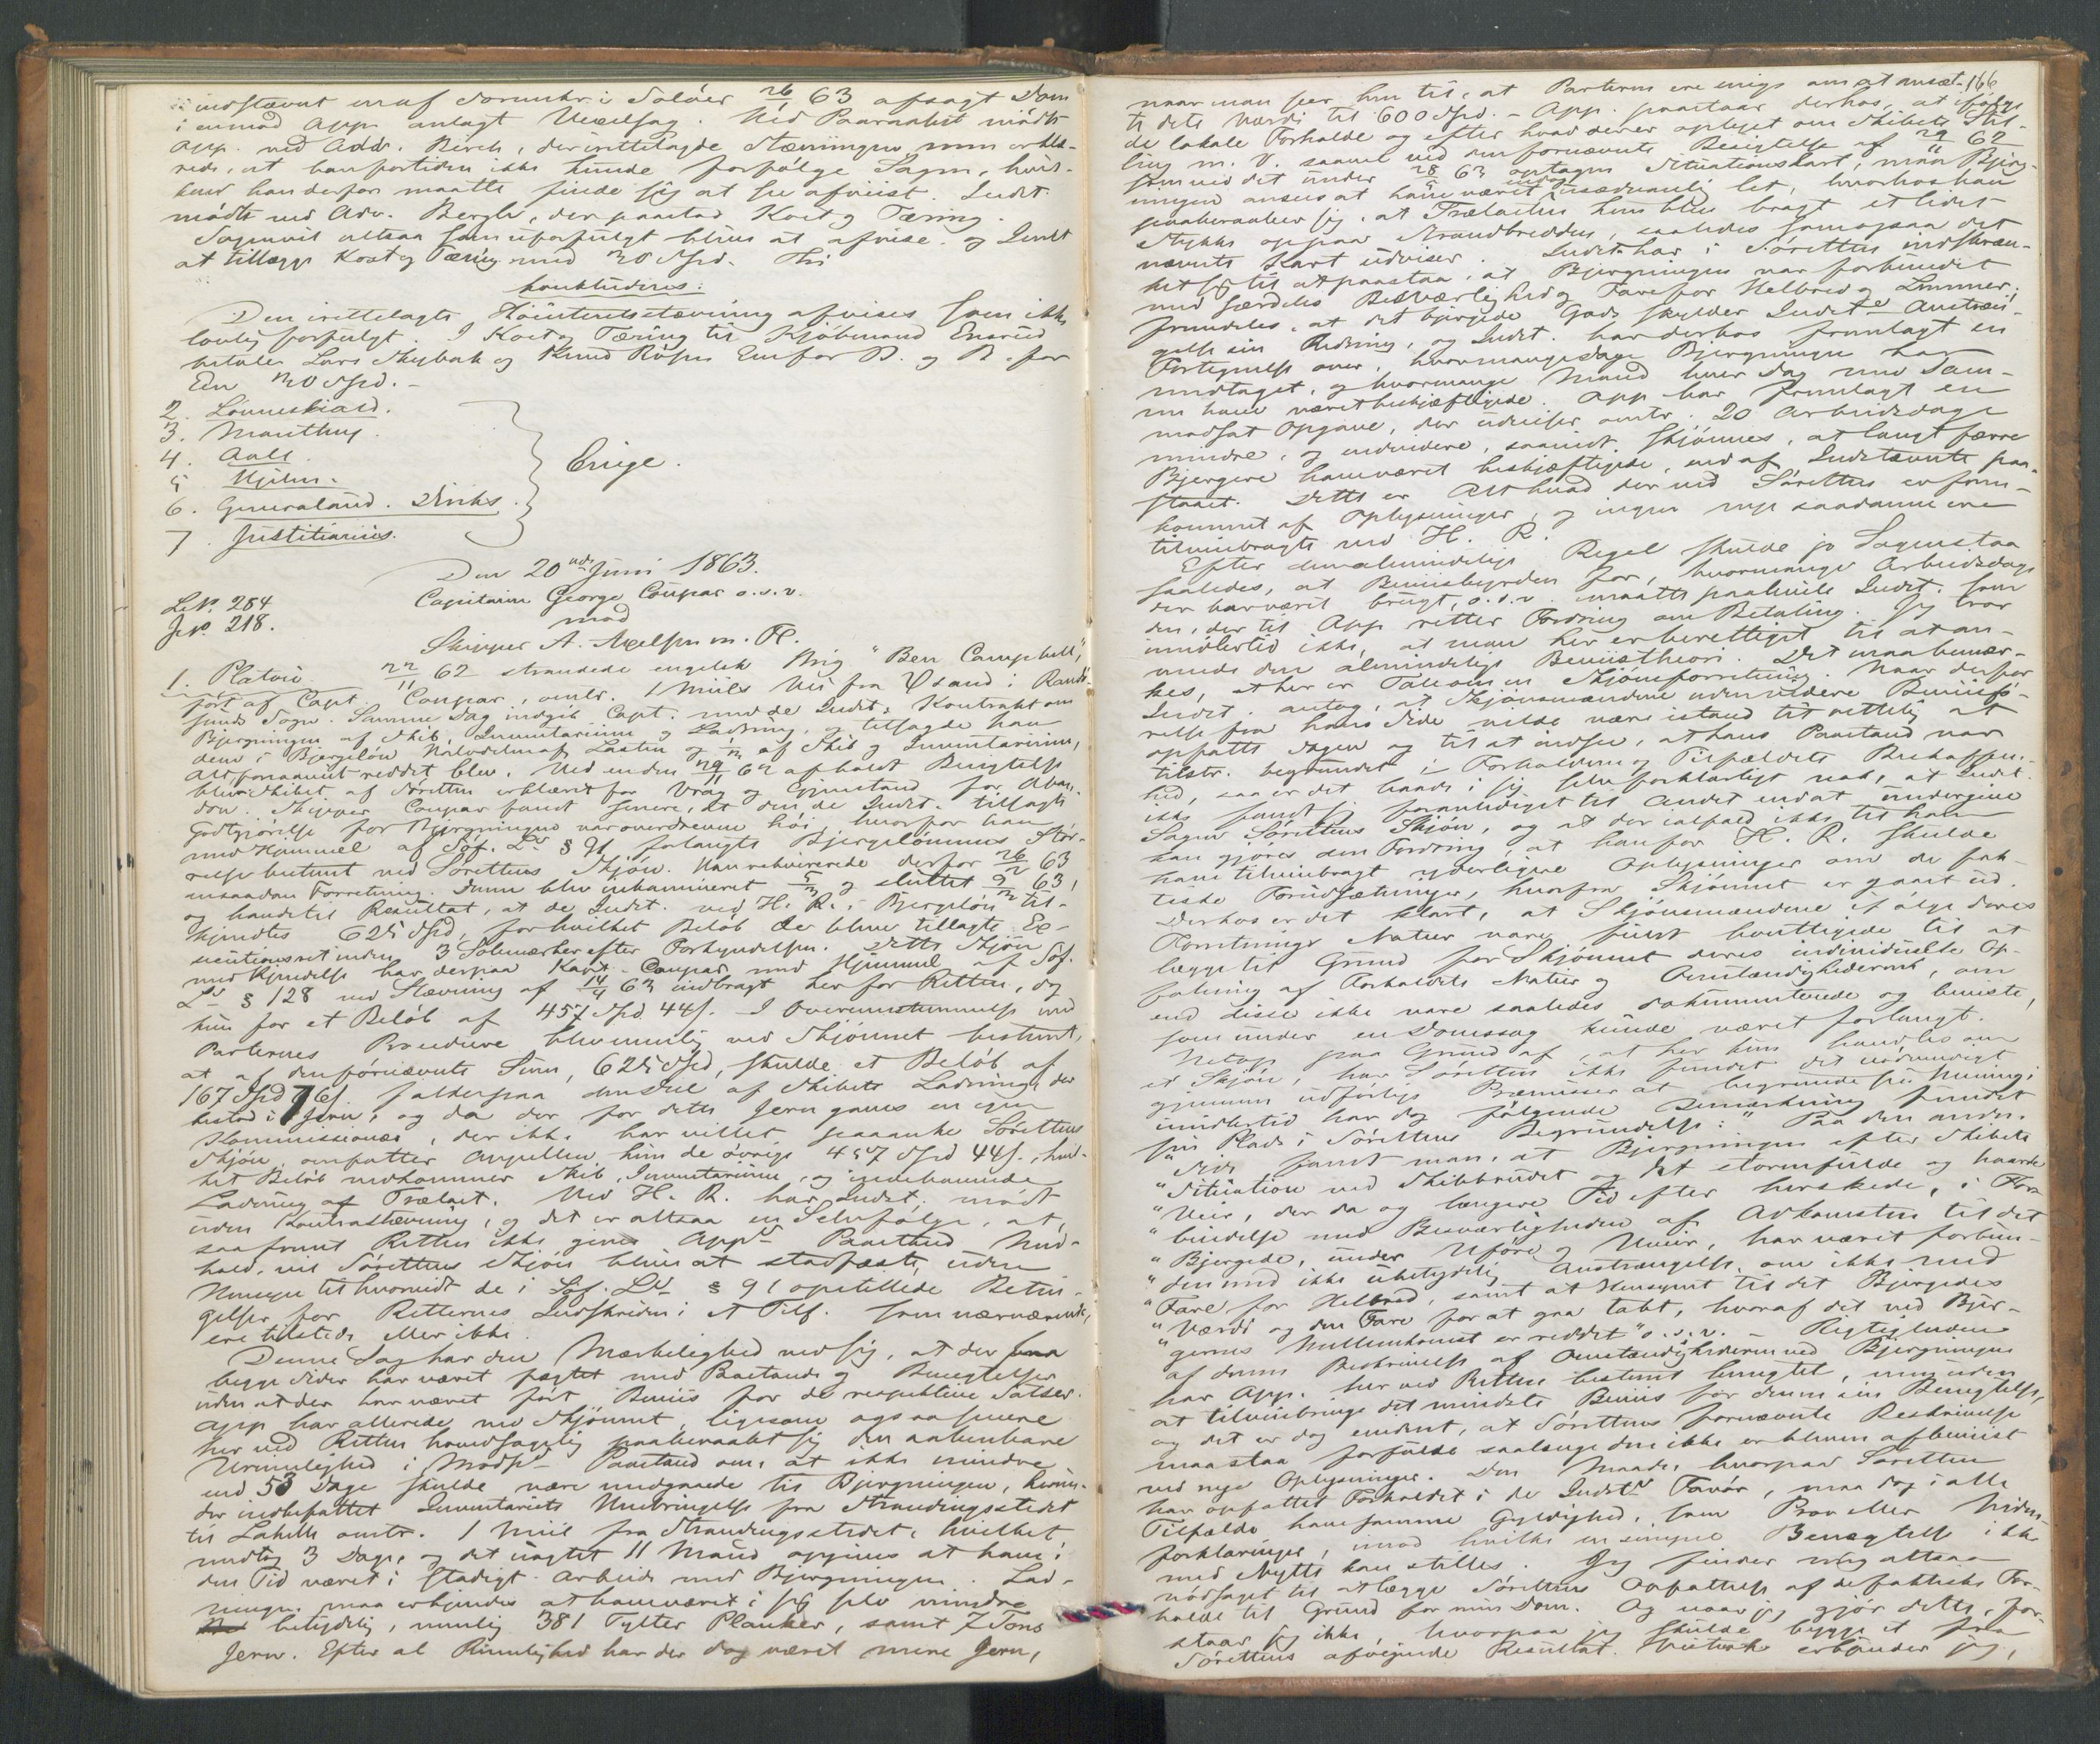 indstævnt en af Sorenskr. i Solöer 26/1 63 afsagt Dom
i en mod App. anlagt Vexelsag. Ved Paaraabet mödte
App. ved Adv. Birch, der irettelagde Stævningen, men erklæ-
rede, at han for tiden ikke kunde forfölge Sagen, hvis-
aarsag han derfor maatte finde sig at see afviist. Indst.
mödte ved Adv. Bergh, der paastod Kost og Tæring.
Sagen vil altsaa som uforfulgt blive at afvise og Indst
at tillægge Kost og Tæring med 20 Spd. Thi
konkluderes:
Den irettelagte Höiesteretsstævning afvises som ikke
lovlig forfulgt. I Kost og Tæring til Kjöbmand Ensrud
betaler Lars Skybak og Knud Röhne Een for B. og B. for
Een 20 Spd. –
2. Lönneskiold.
3. Manthey.
4. Aall.
5. Hjelm.
6. Generalaud. Dircks.
7. Justitiarius.
Enige.
Den 20de Juni 1863.
L.No. 284
J.No. 218.
Capitain George Coupar o.s.v.
mod
Skipper A. Axelsen m. Fl.
1. Platou. 22/11 62 strandede engelsk Brig "Ben Campbell",
fört af Capt. Coupar, omtr. 1 Miils Vei fra Ösand i Rand-
sunds Sogn. Samme Dag indgik Capt. med de Indst. Kontrakt om
Bjergningen af Skib, Inventarium og Ladning, og tilsagde han
dem i Bjergelön Halvdelen af Lasten og 1/2 af Skib og Inventarium,
Alt forsaavidt reddet blev. Ved en den 29/11 62 afholdt Besigtelse
blev Skibet af Söretten erklæret for Vrag og Gjenstand for Aban-
don. Skipper Coupar fandt senere, at den de Indst. tilsagte
Godtgjörelse for Bjergningen var overdreven höi, hvorfor han
med Hjemmel af Söf. Lv § 91 forlangte Bjergelönnens Stör-
relse bestemt ved Sörettens Skjön. Han rekvirerede derfor 26/2 63
en saadan Forretning. Denne blev inkamineret 5/3 og sluttet 9/3 63,
og havde til Resultat, at de Indst. ved H. R. i Bjergelön til-
kjendtes 625 Spd, for hvilket Belöb der blev tillagte Ex-
ecutionsret inden 3 Solemærker efter Forkyndelsen. Dette Skjön
med Kjendelse har derpaa Kapt. Coupar med Hjemmel af Söf.
Lv § 128 ved Stævning af 14/4 63 indbragt her for Retten, dog
kun for et Belöb af 457 Spd 44 s. I Overensstemmelse med
Parternes Procedure blev nemlig ved Skjönnet bestemt,
at af den fornævnte Sum, 625 Spd, skulde et Belöb af
167 Spd 76 s. falde paa den Del af Skibets Ladning, der
bestod i Jern, og da der for dette Jern gaves en egen
Kommissionær, der ikke har villet paaanke Sörettens
Skjön, omfatter Appellen kun de övrige 457 Spd 44 s., hvil-
ket Belöb vedkommer Skib, Inventarium, og indehavende
Ladning af Trælast. Ved H. R. har Indst. mödt
uden Kontrastævning, og det er altsaa en Selvfölge, at,
saafremt Retten ikke giver Appts Paastand Med-
hold, vil Sörettens Skjön blive at stadfæste, uden
Hensyn til hvorvidt de i Söf. Lv § 91 opstillede Betin-
gelser for Retternes Indskriden i et Tilf. som nærværende,
ere tilstede eller ikke.
Denne Sag har den Mærkelighed ved sig, at der fra
begge Sider har været fægtet med Paastande og Benegtelser
uden at der har været fört Beviis for de respektive Satser.
App. har allerede ved Skjönnet, ligesom ogsaa senere
her ved Retten hovedsagelig paaberaabt sig den aabenbare
Urimelighed i Modp.s Paastand om, at ikke mindre
end 53 Dage skulde være medgaaede til Bjergningen, herun-
der indbefattet Inventariets Henbringelse fra Strandingsstedet
til Lahelle omtr. 1 Miil fra Strandingsstedet, hvilket
medtog 3 Dage, og det uagtet 11 Mand opgives at have i
den Tid været i stadigt Arbeide med Bjergningen. Lad-
ningen maa erkjendes at have været i sig selv mindre
betydelig, nemlig 381 Tylter Planker, samt 7 Tons
Jern. Efter al Rimelighed har der dog været mere Jern,
166
naar man seer hen til, at Parterne ere enige om at ansæt-
te dets Værdi til 600 Spd. – App. paastaar derhos, at ifölge
de lokale Forholde og efter hvad der er oplyst om Skibets Stil-
ling m. V. saavel ved den fornævnte Besigtelse af 29/11 62
som ved det under 28/2 63 optagne Situationskart, maa Bjerg-
ningen ansees at have været endog usædvanlig let, hvorhos han
paaberaaber sig, at Trælasten kun blev bragt et lidet
Stykke op paa Strandbredden, saaledes som ogsaa det
nævnte Kart udviser. Indst. har i Söretten indskræn-
ket sig til at paastaa, at Bjergningen var forbundet
med særdeles Besværlighed og Fare for Helbred og Lemmer;
fremdeles, at det bjergede Gods skylder Indstes Anstræn-
gelse sin Redning, og Indst. har derhos fremlagt en
Fortegnelse over, hvor mange Dage Bjergningen har
medtaget, og hvormange Mand hver Dag med Sam-
me have været beskjæftigede. App. har fremlagt en
modsat Opgave, der udviser omtr. 20 Arbeidsdage
mindre, og endvidere, saavidt skjönnes, at langt færre
Bjergere have været beskjæftigede, end af Indstævnte paa-
staaet. Dette er Alt hvad der ved Söretten er frem-
kommet af Oplysninger, og ingen nye saadanne ere
tilveiebragte ved H. R.
Efter den almindelige Regel skulde jo Sagen staa
saaledes, at Beviisbyrden for, hvormange Arbeidsdage
der har været brugt, o.s.v. maatte paahvile Indst. som
den, der til App. retter Fordring om Betaling. Jeg tror
imidlertid ikke, at man her er berettiget til at an-
vende den almindelige Beviistheori. Det maa bemær-
kes, at her er Tale om en Skjönsforretning. Naar derfor
Indst. antog, at Skjönsmændene uden videre Beviisfö-
relse fra hans Side vilde være istand til rettelig at
opfatte Sagen og til at indsee, at hans Paastand var
tilstr. begrundet i Forholdene og Tilfældets Beskaffen-
hed, saa er det baade i sig selv forklarligt nok, at Indst.
ikke fandt sig foranlediget til Andet end at undergive
Sagen Sörettens Skjön, og at der ialfald ikke til ham
kan gjöres den Fordring at han for H. R. skulde
have tilveiebragt yderligere Oplysninger om de fak-
tiske Forudsætninger, hvorfra Skjönnet er gaaet ud.
Derhos er det klart, at Skjönsmændene ifölge deres
Forretnings Natur vare fuldt beettigede til at
lægge til Grund for Skjönnet deres individuelle Op-
fatning af Forholdets Natur og Omstændighederne, om
end disse ikke vare saaledes dokumenterede og beviste,
som under en Domssag kunde været forlangt.
Netop paa Grund af, at her kun handles om
et Skjön, har Söretten ikke fundet det nödvendigt
gjennem udförlige Præmisser at begrunde sin Mening;
imidlertid har dog fölgende Bemærkning fundet
sin Plads i Sörettens Begrundelse: "Paa den anden
"Side fandt man, at Bjergningen efter Skibets
"Situation ved Skibbrudet og det stormfulde og haarde
"Veir, der da og længere Tid efter herskede, i For-
"bindelse med Besværligheden af Adkomsten til det
"Bjergede, under Uföre og Uveir, har været forbun-
"den med ikke ubetydelig Anstrængelse, om ikke med
"Fare for Helbred, samt at Hensynet til det Bjergedes
"Værdi og den Fare for at gaa tabt, hvoraf det ved Bjer-
"gernes Mellemkomst er reddet" o.s.v. – Rigtigheden
af denne Beskrivelse af Omstændighederne ved Bjergningen
har App. her ved Retten bestemt benegtet, men uden
at tilveiebringe det mindste Beviis for denne sin Benegtelse,
og det er dog evident, at Sörettens fornævnte Beskrivelse
maa staa for fulde saalænge den ikke er bleven afbeviist
ved nye Oplysninger. Den Maade, hvorpaa Söretten
har opfattet Forholdet i de Indsts Favör, maa dog i alle
Tilfælde have samme Gyldighed, som Prov eller Vidne-
forklaringer, imod hvilke en simpel Benægtelse ikke
med Nytte kan stilles. Jeg finder mig altsaa
nödsaget til at lægge Sörettens Opfattelse af de faktiske For-
holde til Grund for min Dom. Og naar jeg gjör dette, for-
staar jeg ikke, hvorpaa jeg skulde bygge et fra
Sörettens afvigende Resultat. Vistnok erkjender jeg,